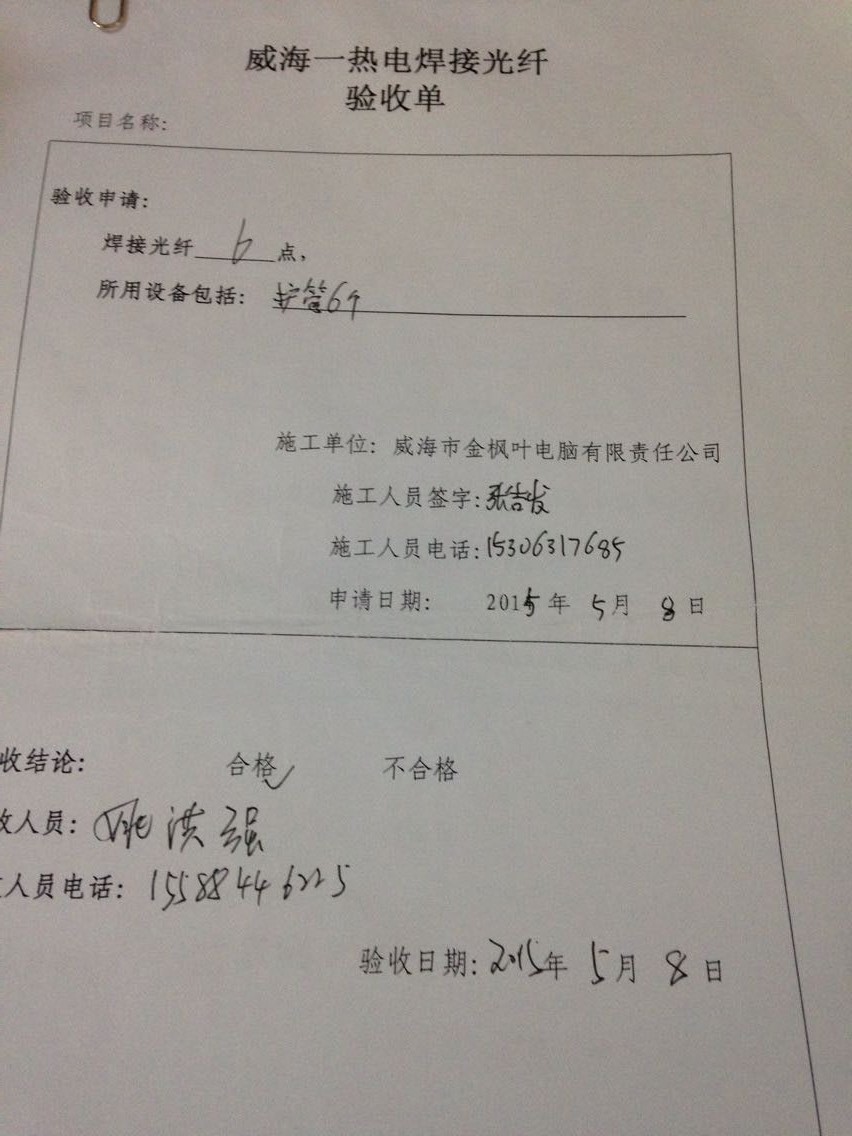 威海一热电焊接光纤
验收单
项目名称:
验收申请:
焊接光纤 6 点,
所用设备包括: 护管6个
施工单位: 威海市金枫叶电脑有限责任公司
施工人员签字:
施工人员电话:15306317685
申请日期: 2015年 5月 8日
收结论: 合格✓ 不合格
收人员: 姚洪强
人员电话: 15588446225
验收日期: 2015年 5月 8日